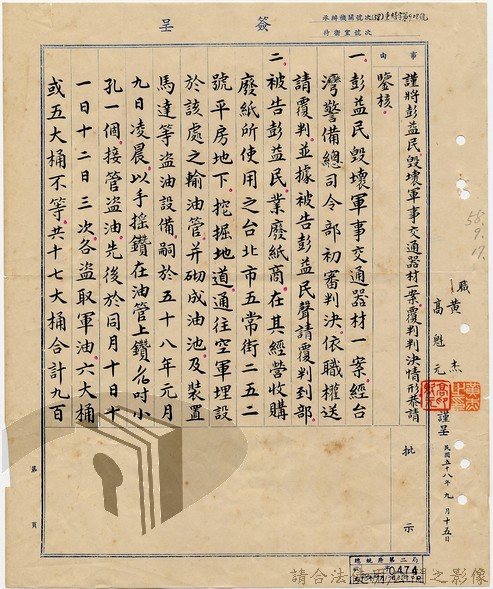 簽呈
承辦機關號次(58)
侍衛室號次
事由
謹將彭益民毀壞軍事交通器材一案覆判判決情形恭請
鑒核。
職 黃杰
高魁元 謹呈
民國五十八年九月十五日
58.9.17.
批示
一、彭益民毀壞軍事交通器材一案經台
灣警備總司令部初審判決依職權送
請覆判並據被告彭益民聲請覆判到部。
二、被告彭益民業廢紙商在其經營收購
廢紙所使用之台北市五常街二五二
號平房地下挖掘地道通往空軍埋設
於該處之輸油管并砌成油池及裝置
馬達等盜油設備嗣於五十八年元月
九日凌晨以手搖鑽在油管上鑽吋小
孔一個接管盜油先後於同月十日十
一日十二日三次各盜取軍油六大桶
或五大桶不等共十七大桶合計九百
第 頁
總統府第二局
0474
請合法使用公開之影像